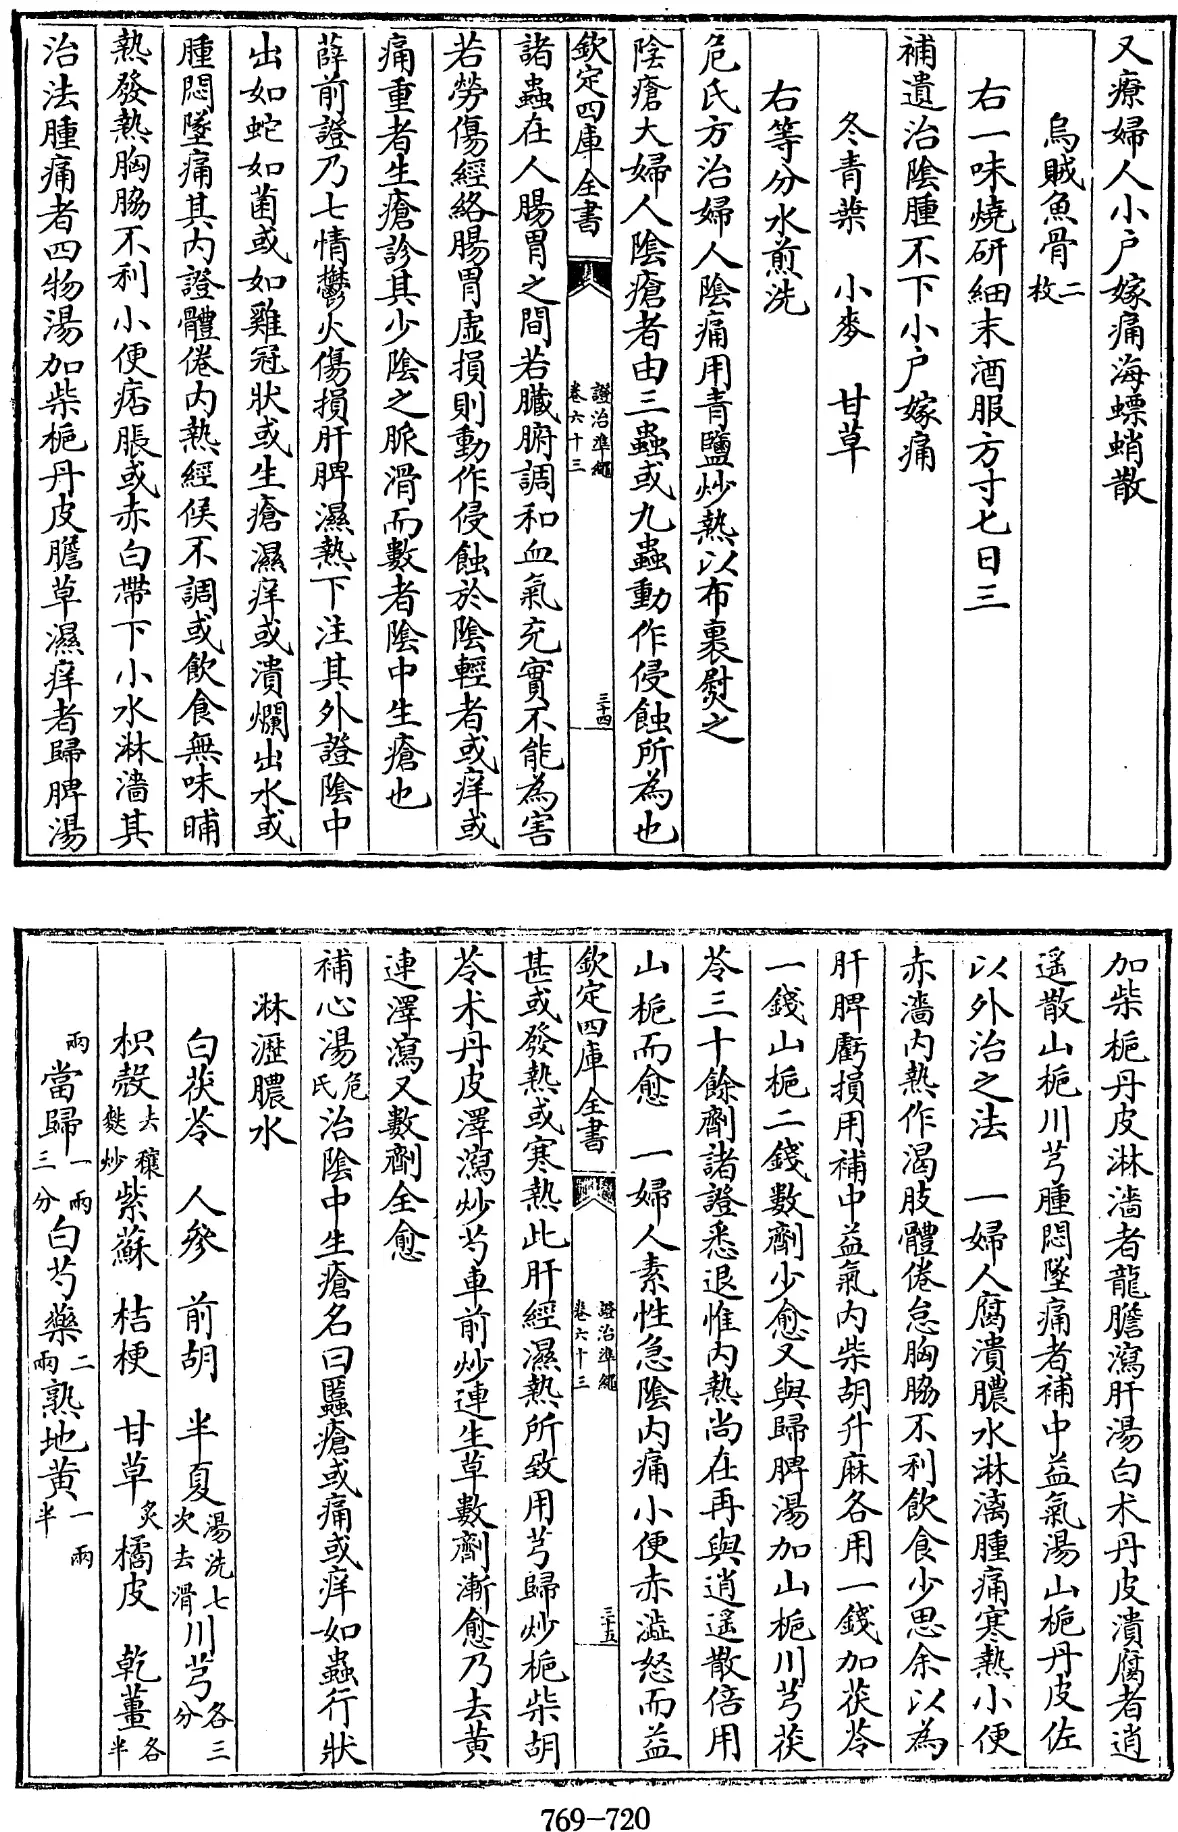 又療婦人小户嫁痛海螵蛸散
烏賊魚骨二枚
右一味燒研細末酒服方寸七日三
補遺治陰腫不下小户嫁痛
冬青葉　小麥　甘草
右等分水煎洗
危氏方治婦人陰痛用青鹽炒熱以布裹熨之
陰瘡大婦人陰瘡者由三蟲或九蟲動作侵蝕所為也
欽定四庫全書
證治準繩
卷六十三
三十四
諸蟲在人腸胃之間若臟腑調和血氣充實不能為害
若勞傷經絡腸胃虛損則動作侵蝕於陰輕者或痒或
痛重者生瘡診其少陰之脈滑而數者陰中生瘡也
薛前證乃七情鬱火傷損肝脾濕熱下注其外證陰中
出如蛇如菌或如雞冠狀或生瘡濕痒或潰爛出水或
腫悶墜痛其内證體倦内熱經候不調或飲食無味晡
熱發熱胸脇不利小便痞脹或赤白帶下小水淋濇其
治法腫痛者四物湯加柴梔丹皮膽草濕痒者歸脾湯
加柴梔丹皮淋濇者龍膽瀉肝湯白术丹皮潰腐者逍
遥散山梔川芎腫悶墜痛者補中益氣湯山梔丹皮佐
以外治之法　一婦人腐潰膿水淋漓腫痛寒熱小便
赤濇内熱作渴肢體倦怠胸脇不利飲食少思余以為
肝脾虧損用補中益氣内柴胡升麻各用一錢加茯苓
一錢山梔二錢數劑少愈又與歸脾湯加山梔川芎茯
苓三十餘劑諸證悉退惟内熱尚在再與逍遥散倍用
山梔而愈　一婦人素性急陰内痛小便赤澁怒而益
欽定四庫全書
證治準繩
卷六十三
三十五
甚或發熱或寒熱此肝經濕熱所致用芎歸炒梔柴胡
苓术丹皮澤瀉炒芍車前炒連生草數劑漸愈乃去黄
連澤瀉又數劑全愈
補心湯危氏治陰中生瘡名曰䘌瘡或痛或痒如蟲行狀
淋瀝膿水
白茯苓　人參　前胡　半夏湯洗七次去滑川芎各三分
枳殼去穰麩炒紫蘇　桔梗　甘草炙橘皮　乾薑各半
兩當歸一兩三分白芍藥二兩熟地黄一兩半
769-720